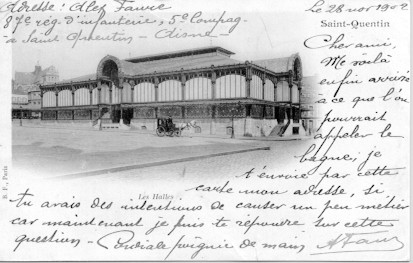 Adresse : Alex Favre
Le 28 nov 1902
87e rég. d'infanterie, 5e Compag.
- à Saint Quentin - Aisne -
Saint-Quentin
Cher ami,
Me voilà
enfin arrivé
à ce que l'on
pourrait
appeler le
bagne, je
t'envoie par cette
carte mon adresse, si
tu avais des intentions de causer un peu métier
car maintenant je puis te répondre sur cette
question - Cordiale poignée de main
AFavre
Les Halles
B. F., Paris